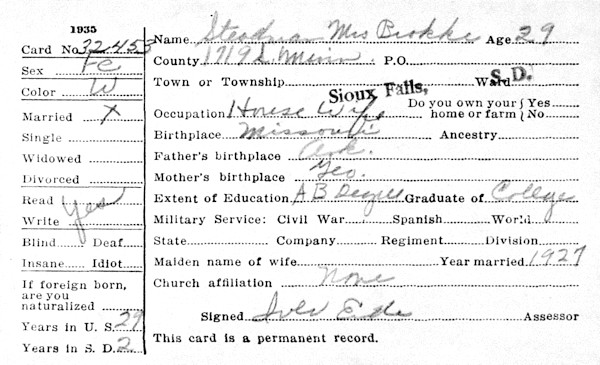 1935
Card No. 32453
Sex Fe
Color W
Married X
Single
Widowed
Divorced
Read Yes
Write
Blind Deaf
Insane Idiot
If foreign born,
are you
naturalized
Years in U. S. 29
Years in S. D. 2
Name Steadman Mrs Age 29
County 1719 S. Minn P.O.
Town or Township Sioux Falls, Ward S. D.
Occupation House Wife Do you own your home or farm { Yes No
Birthplace Missouri Ancestry
Father's birthplace Ark.
Mother's birthplace Geo.
Extent of Education A B Degree Graduate of College
Military Service: Civil War Spanish World
State Company Regiment Division
Maiden name of wife Year married 1927
Church affiliation None
Signed Assessor
This card is a permanent record.